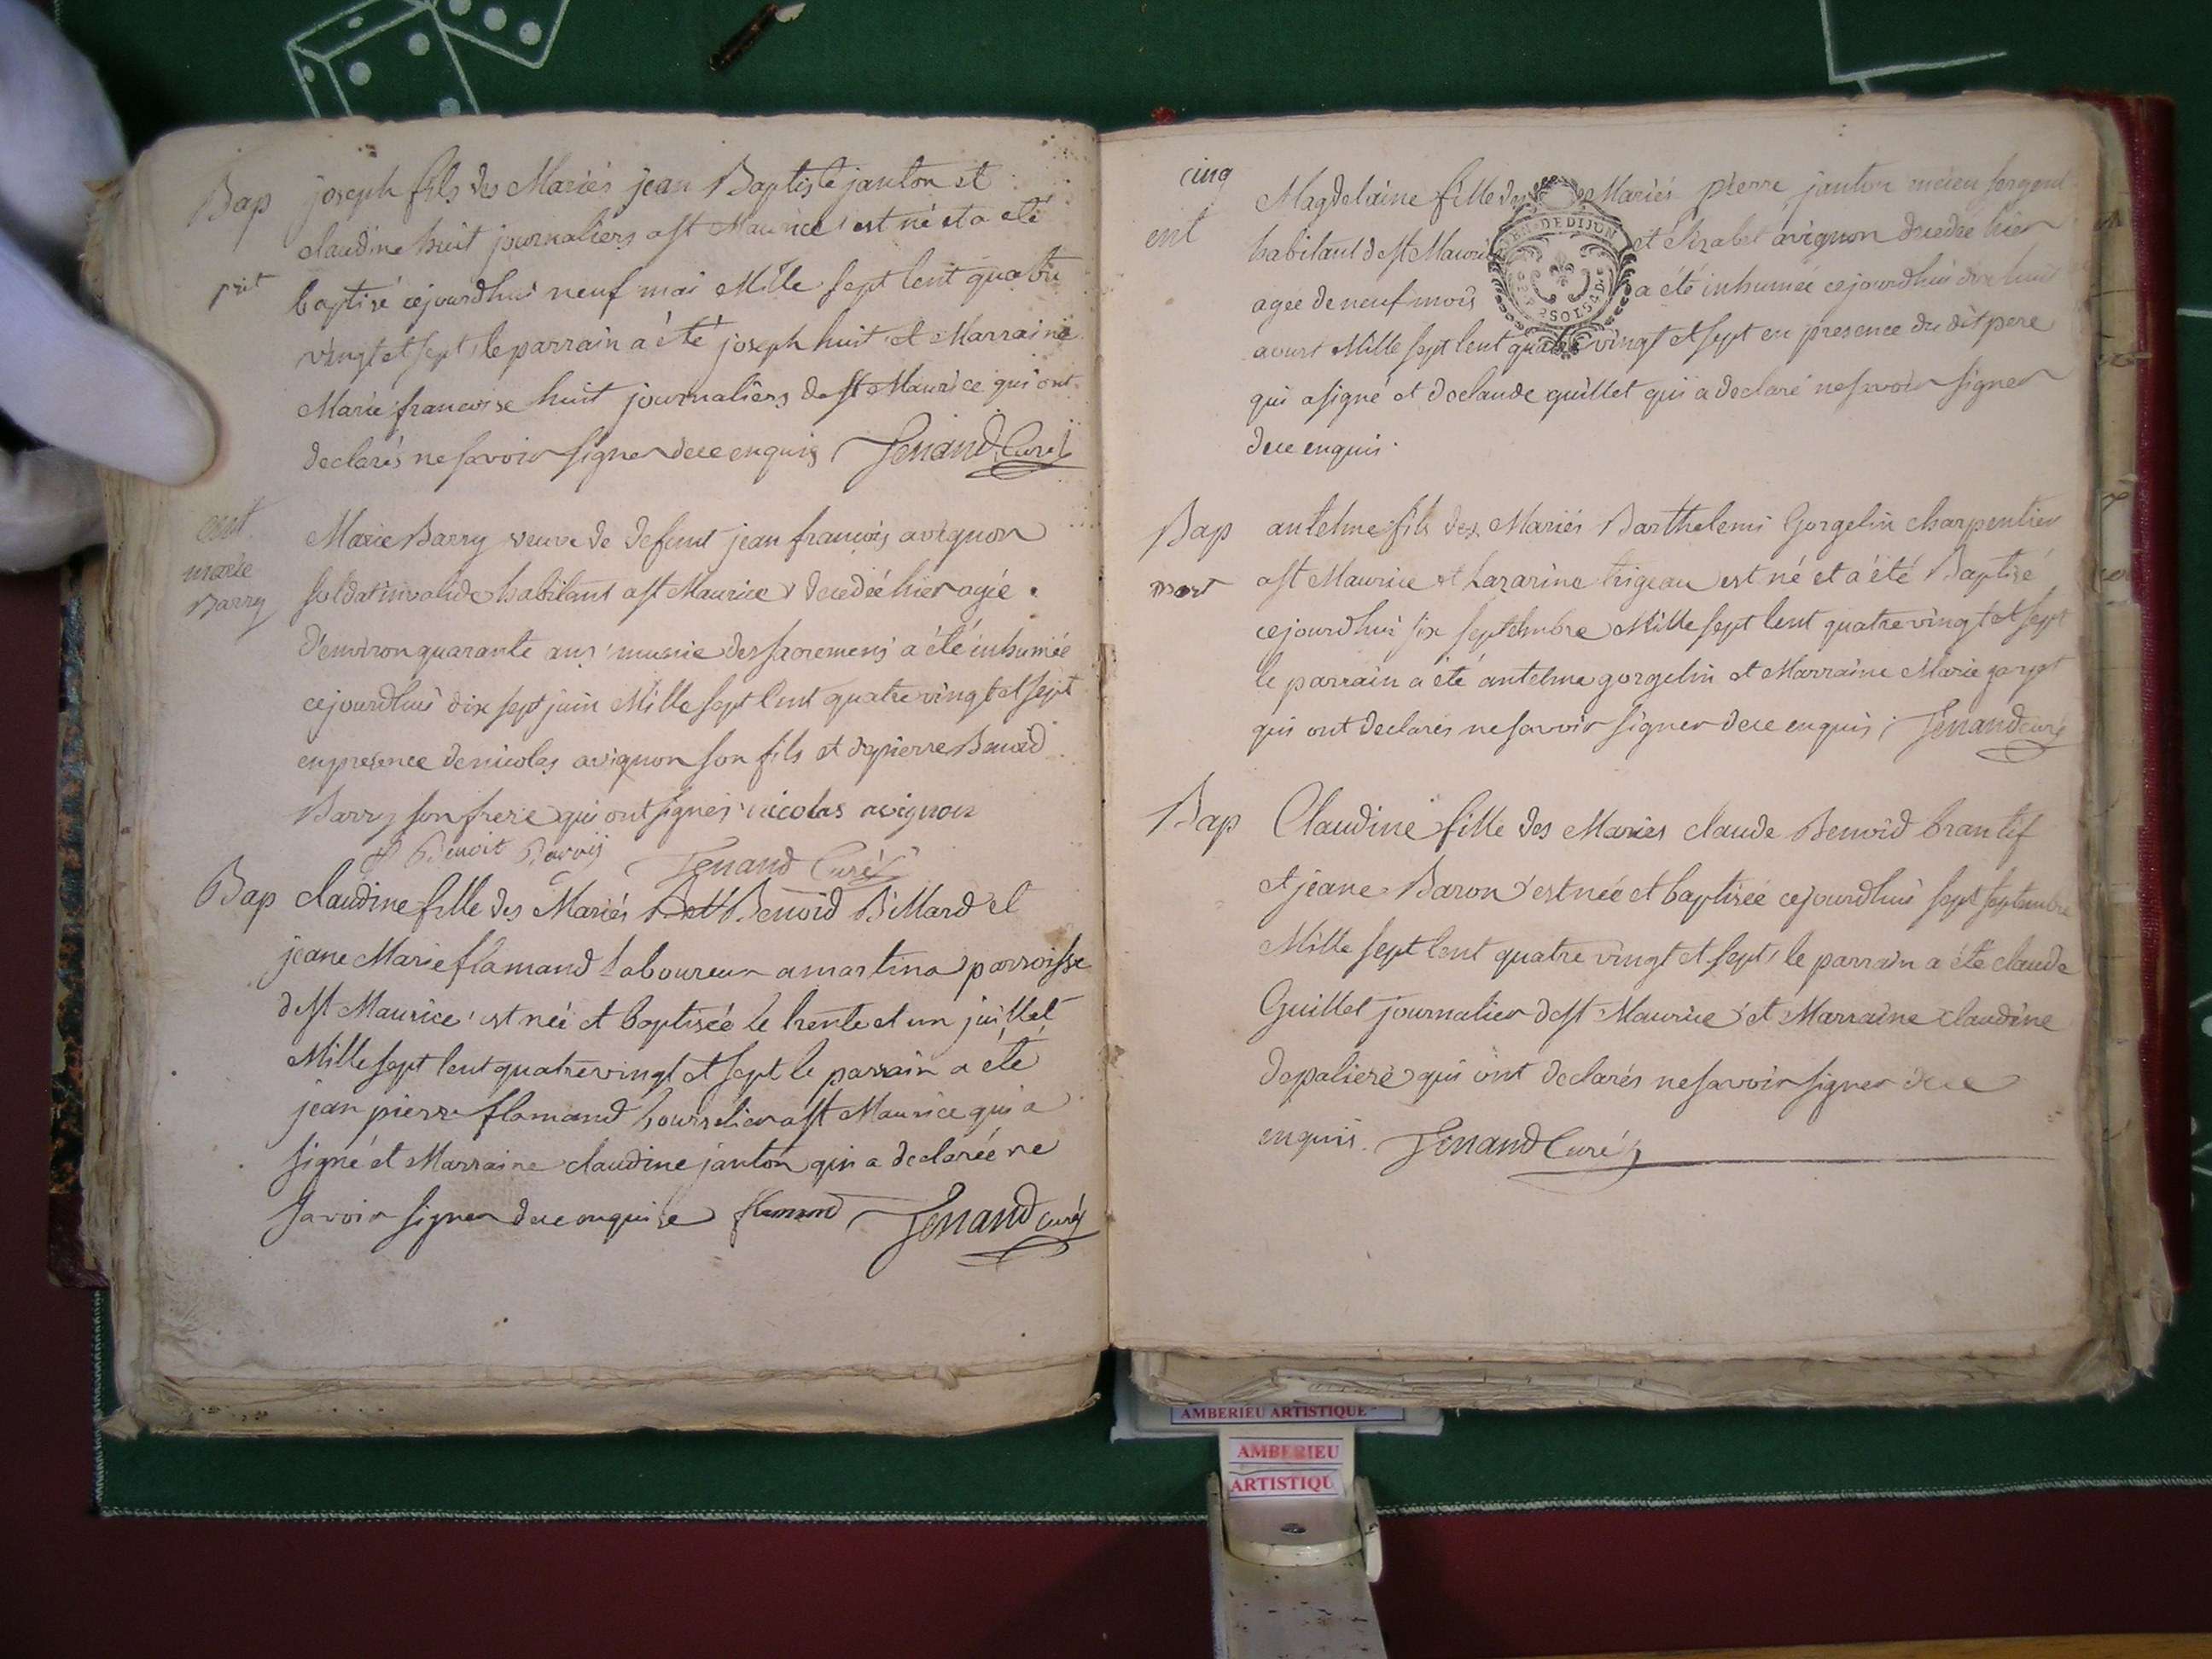 Bap
joseph fils des Mariés jean Baptiste janton et
claudine huit journaliers a st Maurice est né et a eté
baptisé cejourdhui neuf mai Mille sept cent quatre
vingt et sept, le parrain a été joseph huit et Marraine
Marie francoise huit journaliers de st Maurice qui ont
declarés ne savoir signer de ce enquis Tenand Curé
ent
marie
Barry
Marie Barry veuve de defunt jean francois avignon
soldat invalide habitant a st Maurice decedée hier agée
d'environ quarante ans munie des sacremens a été inhumée
cejourdhui dix sept juin Mille sept cent quatre vingt et sept
en presence de nicolas avignon son fils et de pierre Benoid
Barry son frere qui ont signés nicolas avignon
Benoit Barry Tenand Curé
Bap
claudine fille des Mariés Benoid Billard et
jeane Marie flamand laboureur a martina parroisse
de st Maurice est née et baptisée le trente et un juillet
Mille sept cent quatre vingt et sept le parrain a été
jean pierre flamand bourrelier a st Maurice qui a
signé et Marraine claudine janton qui a declarée ne
savoir signer de ce enquise flamand Tenand curé
cinq
ent
Magdelaine fille des Mariés pierre janton
habitant de st Maurice et elizabet avignon decedée hier
agée de neuf mois a été inhumée cejourdhui dix huit
aoust Mille sept cent quatre vingt et sept en presence du dit pere
qui a signé et de claude guillet qui a declaré ne savoir signer
de ce enquis.
GEN. DE DIJON
Bap
mort
antelme fils des Mariés Barthelemi Gorgelin charpentier
a st Maurice et Lazarine trigeau est né et a été Baptisé
cejourdhui six septembre Mille sept cent quatre vingt et sept
le parrain a été antelme gorgelin et Marraine Marie
qui ont declarés ne savoir signer de ce enquis Tenand curé
Bap
Claudine fille des Mariés claude Benoid brantif
et jeane Baron est née et baptisée cejourdhui sept septembre
Mille sept cent quatre vingt et sept, le parrain a été claude
Guillet journalier de st Maurice et Marraine claudine
depalieré qui ont declarés ne savoir signer de ce
enquis. Tenand Curé
AMBERIEU ARTISTIQUE
AMBERIEU
ARTISTIQU